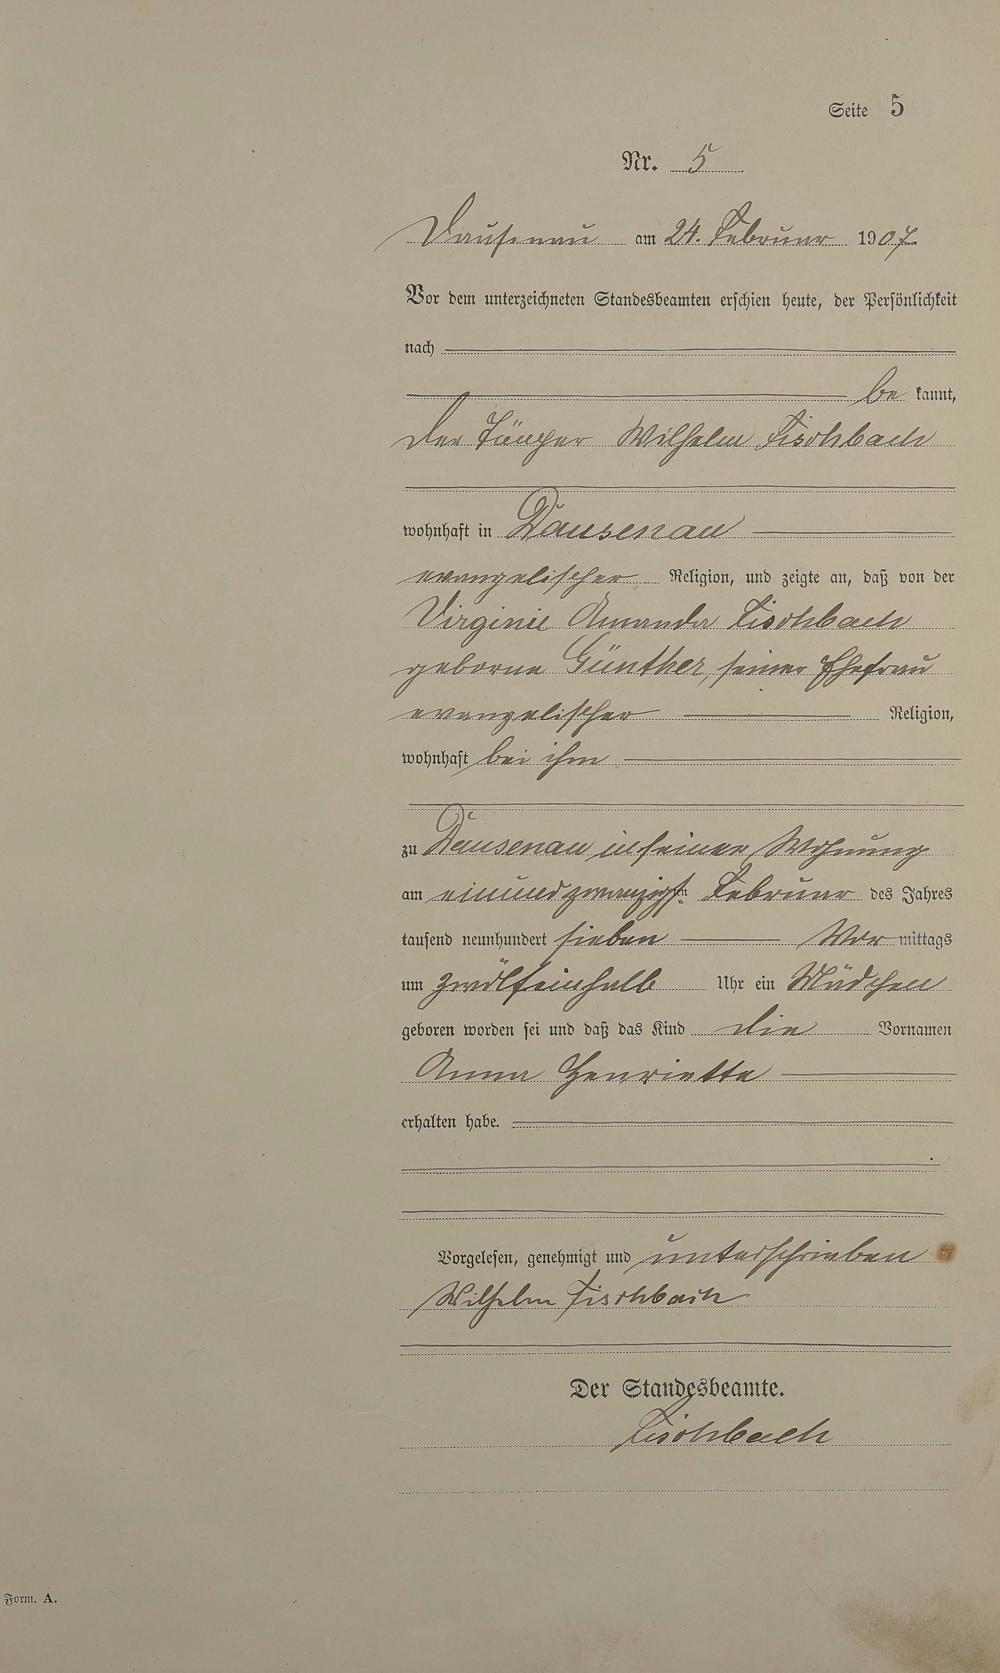 Seite 5
Nr. 5
Dausenau am 24. Februar 1907.
Vor dem unterzeichneten Standesbeamten erschien heute, der Persönlichkeit
nach
be kannt,
der Wilhelm Fischbach
wohnhaft in Dausenau
evangelischer Religion, und zeigte an, daß von der
Virginie Amanda Fischbach
geborne Günther, seiner Ehefrau
evangelischer Religion,
wohnhaft bei ihm
zu Dausenau in seiner Wohnung
am einundzwanzigsten Februar des Jahres
tausend neunhundert sieben Vor mittags
um zwölfeinhalb Uhr ein Mädchen
geboren worden sei und daß das Kind die Vornamen
Anna Henriette
erhalten habe.
Vorgelesen, genehmigt und unterschrieben
Wilhelm Fischbach
Der Standesbeamte.
Fischbach
Form. A.